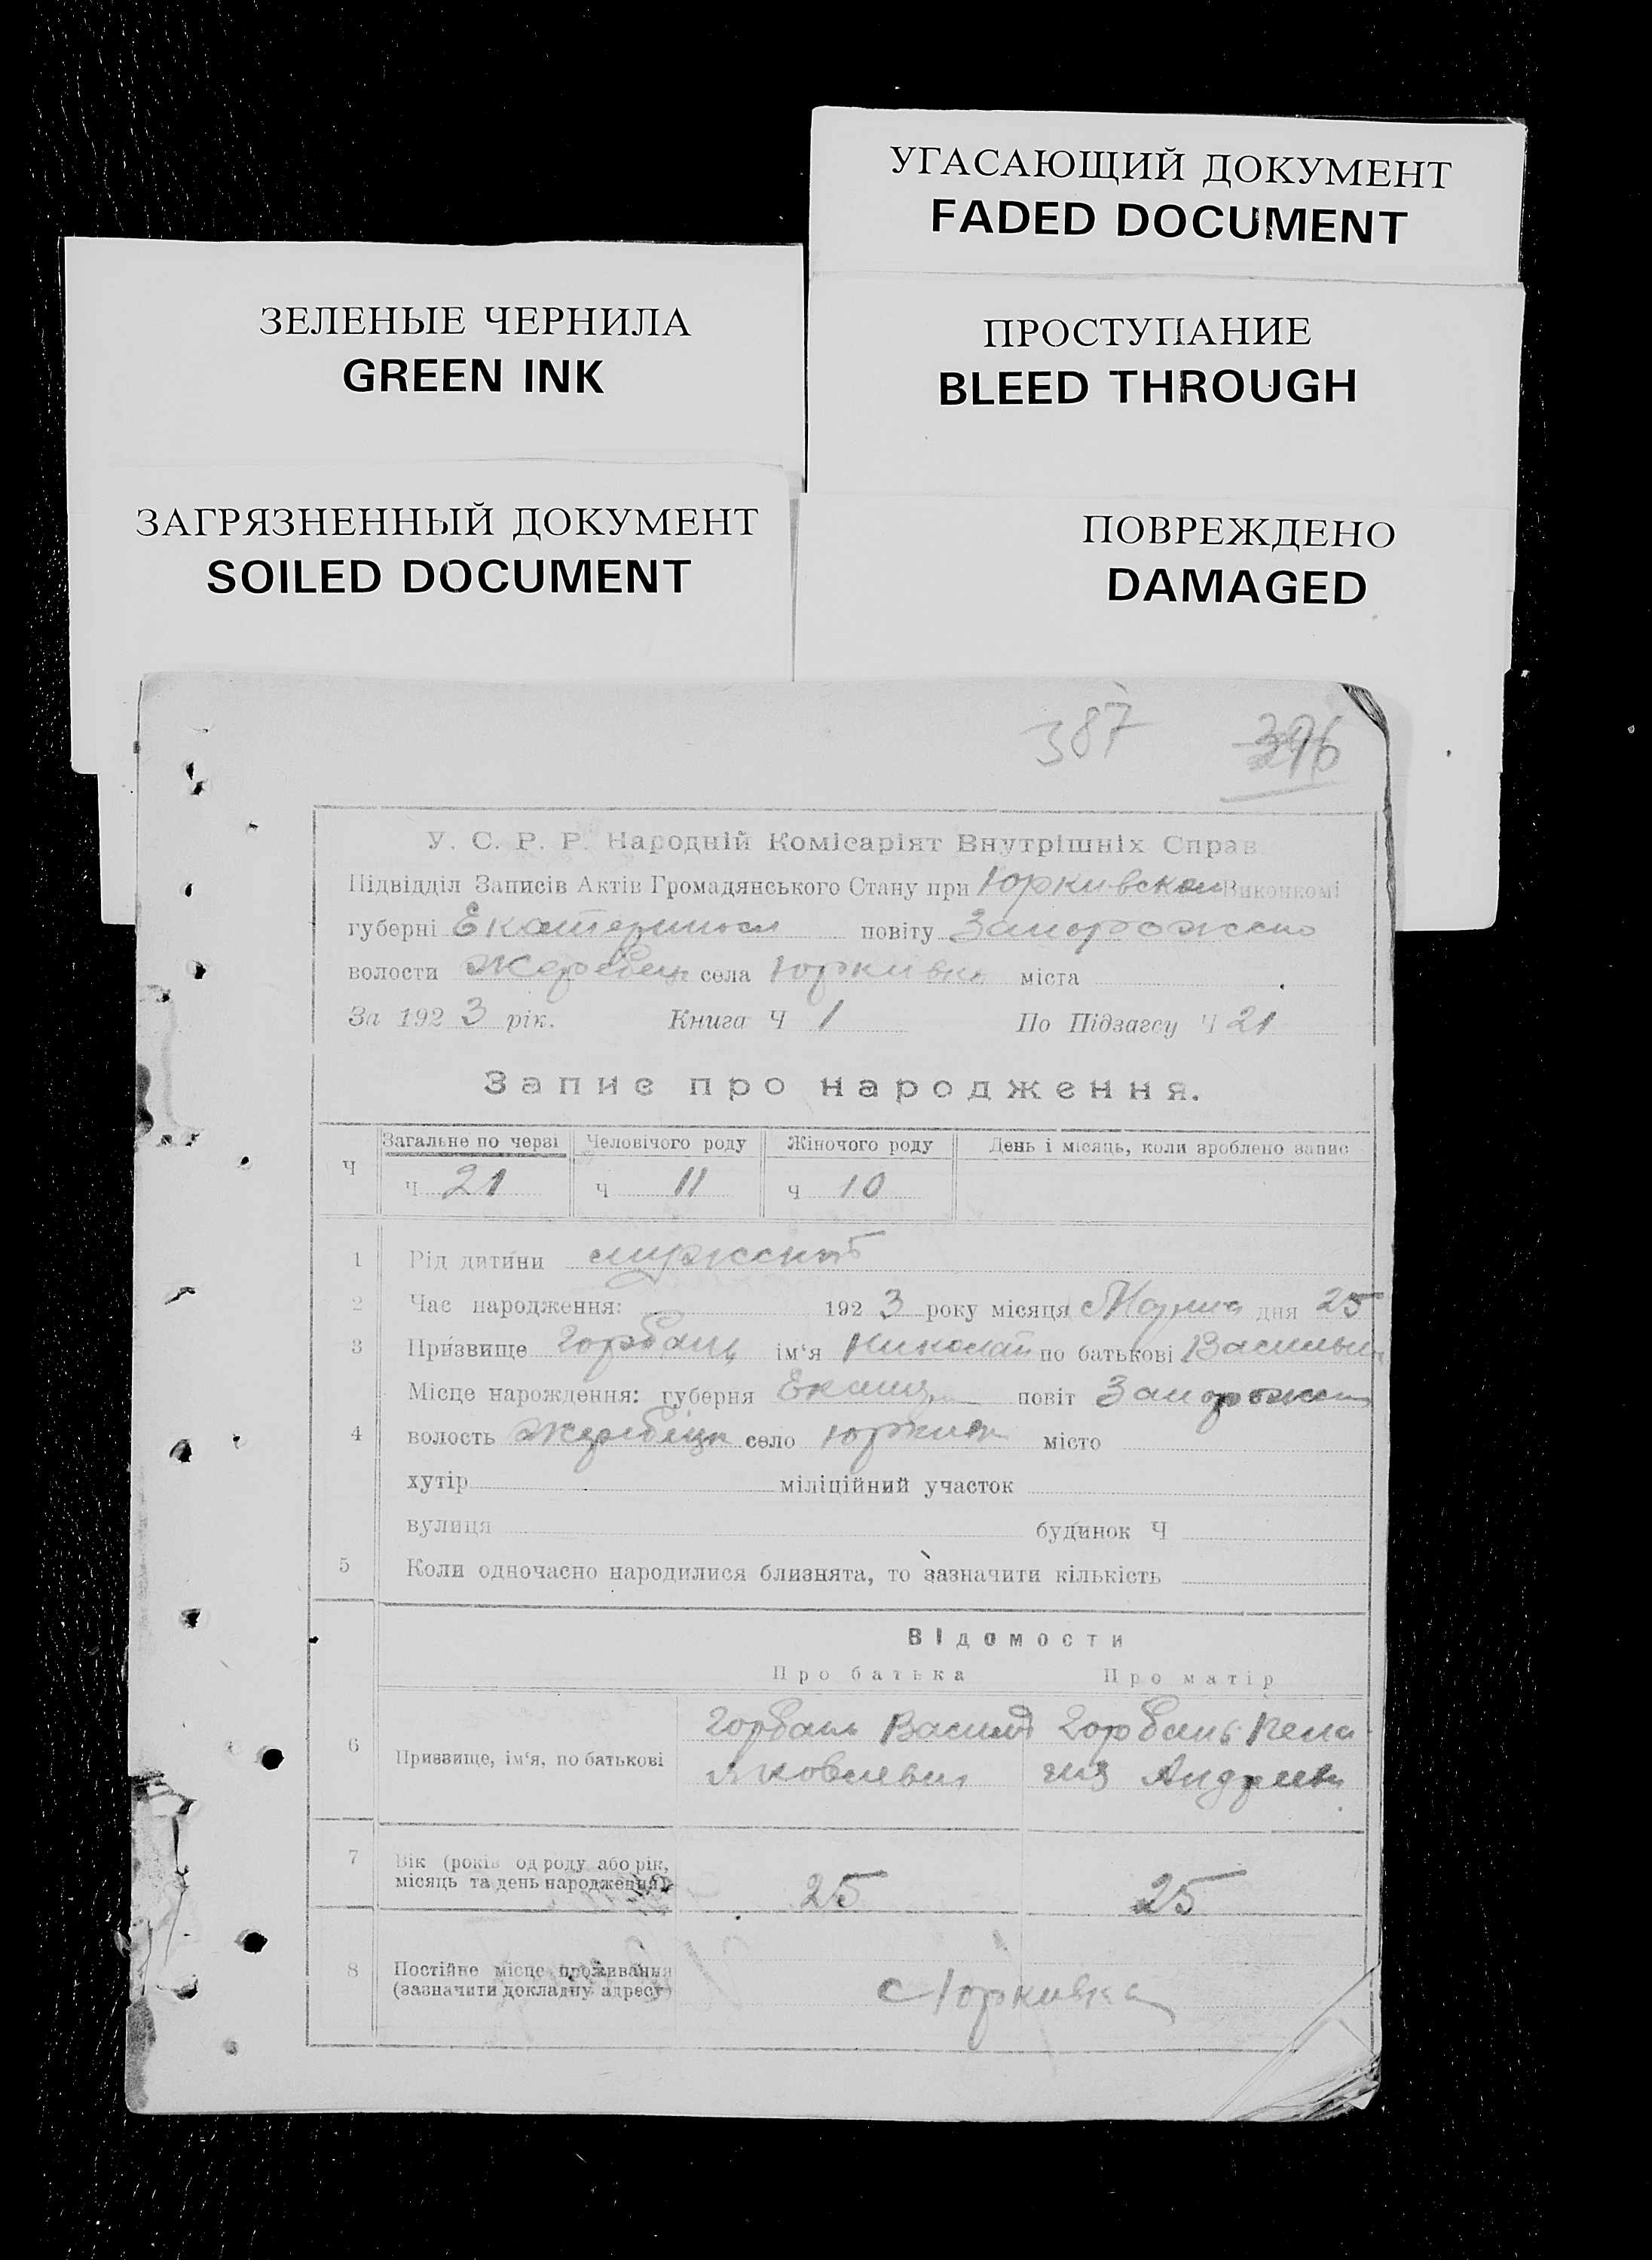 УГАСАЮЩИЙ ДОКУМЕНТ
FADED DOCUMENT
ЗЕЛЕНЫЕ ЧЕРНИЛА
GREEN INK
ПРОСТУПАНИЕ
BLEED THROUGH
ЗАГРЯЗНЕННЫЙ ДОКУМЕНТ
SOILED DOCUMENT
ПОВРЕЖДЕНО
DAMAGED
387 396
У. С. Р. Р. Народній Комісаріят Внутрішніх Справ.
Підвідділ Записів Актів Громадянського Стану при Юркивском Виконкомі
губерні повіту
волости Жеребець села Юркивка міста
За 1923 рік. Книга Ч 1 По Підзагсу Ч 21
Запис про народження.
Ч Загальне по черзі Человічого роду Жіночого роду День і місяць, коли зроблено запис
Ч 21 Ч 11 Ч 10
1 Рід дитини
2 Час народження: 1923 року місяця дня 25
3 Призвище Горбань ім‘я Николай по батькові
Місце нарождення: губерня повіт
4 волость село место
хутір міліційний участок
вулиця будинок Ч
5 Коли одночасно народилися близнята, то зазначити кількість
Відомости
Про батька Про матір
6 Призвище, ім‘я, по батькові Горбань Василий Горбань Пела
гия
7 Вік (років од роду або рік, місяць та день народження) 25 25
8 Постійне місце проживання
(зазначити докладну адресу) с Юркивка